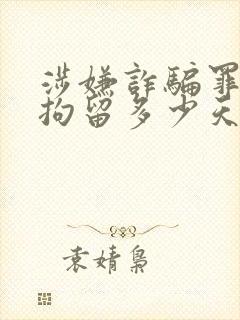 涉嫌詐騙罪
拘留多少天
袁婧梟